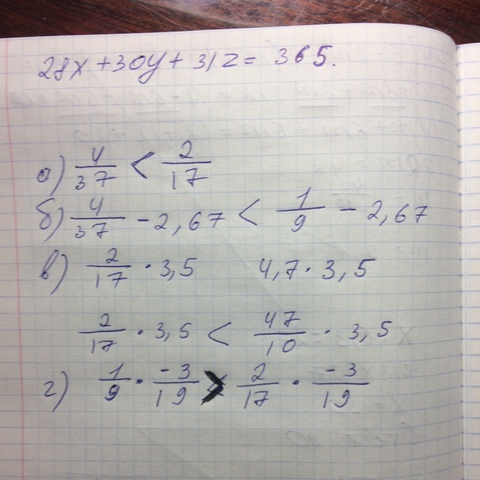 28x + 30y + 31z = 365.
а) 4/37 < 2/17
б) 4/37 - 2,67 < 1/9 - 2,67
в) 2/17 · 3,5 4,7 · 3,5
2/17 · 3,5 < 47/10 · 3,5
г) 1/9 · -3/19 > 2/17 · -3/19